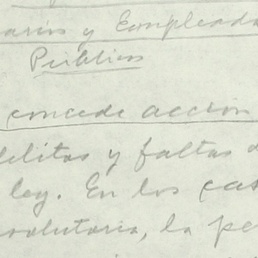 arios y Empleados
Públicos
concede acción
delitos y faltas d
ley. En los cas
solutoria, la pe